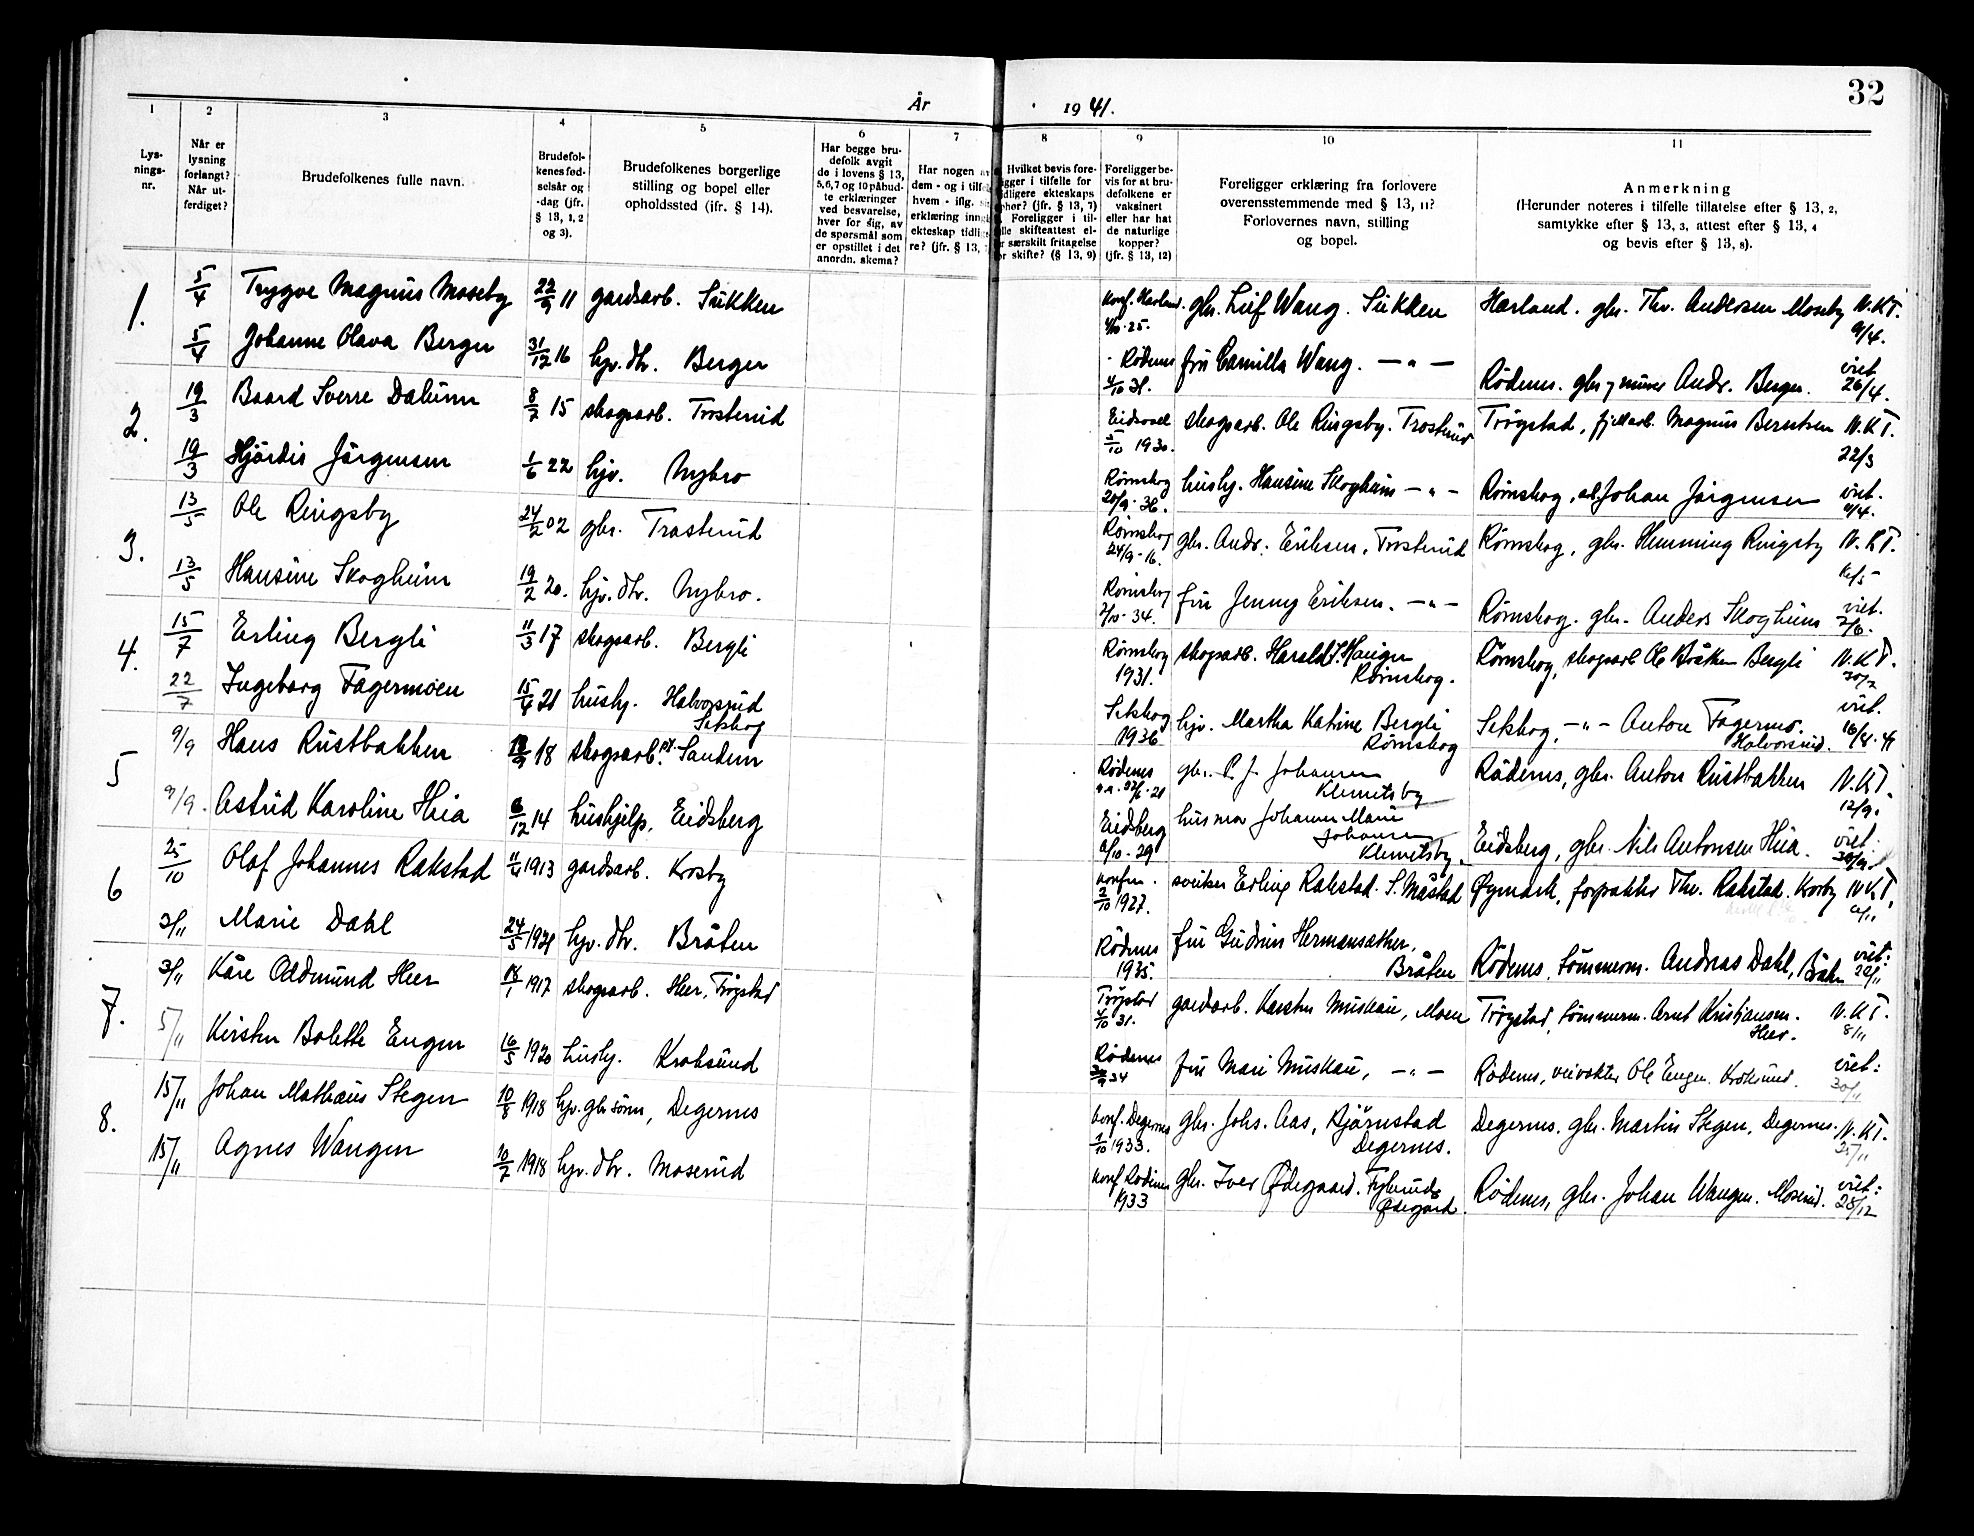 32
År 1941.
1 2 3 4 5 6 7 8 9 10 11
Lys-
nings-
nr.
Når er
lysning
forlangt?
Når ut-
ferdiget?
Brudefolkenes fulle navn.
Brudefol-
kenes fød-
selsår og
-dag (jfr.
§ 13, 1, 2
og 3).
Brudefolkenes borgerlige
stilling og bopel eller
opholdssted (ifr. § 14).
Har begge bru-
defolk avgit
de i lovens § 13,
5, 6, 7 og 10 påbud-
te erklæringer
ved besvarelse,
hver for sig, av
de spørsmål som
er opstillet i det
anordn. skema?
Har nogen
dem - og i tilf
hvem - iflg.
erklæring inn
ekteskap tidl
re? (jfr. § 13,
Hvilket bevis fore-
gger i tilfelle for
dligere ekteskaps
phør? (jfr. § 13, 7)
Foreligger i til-
lle skifteattest el-
r særskilt fritagelse
or skifte? (§ 13, 9)
Foreligger be-
vis for at bru-
defolkene er
vaksinert
eller har hat
de naturlige
kopper?
(jfr. § 13, 12)
Foreligger erklæring fra forlovere
overensstemmende med § 13, 11?
Forlovernes navn, stilling
og bopel.
Anmerkning
(Herunder noteres i tilfelle tillatelse efter § 13, 2,
samtykke efter § 13, 3, attest efter § 13, 4
og bevis efter § 13, 8).
1. 5/4 Trygve Magnus Moseby 22/9 11 gardsarb. Sukken gbr. Leif Wang. Sukken Harland. gbr. Thv. Andersen Moseby N.KT. 9/4.
5/4 Johanne Olava Berger 31/12 16 hjv. dtr. Berger Rødenes 4/10 31. fru Camilla Wang. — " — Rødenes. gbr. Andr. Berger. viet 26/4.
2. 19/3 Baard Sverre Dalum 8/7 15 skogsarb. Trosterud Eidsvoll 5/10 1930. skogsarb. Ole Ringsby. Trosterud Trøgstad, fjellarb. Magnus Berntsen N.KT. 22/3
19/3 Hjördis Jörgensen 1/6 22 hjv. Nybro Rømskog 20/9 - 36. hushj. Hansine Skogheim — " — Rømskog, Johan Jörgensen viet.
3. 13/5 Ole Ringsby 24/2 02 gbr. Trosterud Rømskog 24/9 - 16. gbr. Andr. Eriksen, Trosterud Rømskog, gbr. Hemming Ringsby N.KT.
13/5 Hansine Skogheim 19/2 20. hjv. dtr. Nybro. Rømskog 7/10 - 34. fru Jenny Eriksen. — " — Rømskog. gbr. Anders Skogheim viet. 2/6.
4. 15/7 Erling Bergli 11/3 17 skogsarb. Bergli Rømskog 1931. skogsarb. Harald Haugen Rømskog. Rømskog, skogsarb Ole Bråthen Bergli N.KT. 20/7
22/7 Ingeborg Fagermoen 15/4 21 hushj. Halvorsrud Setskog Setskog 1936 hjv. Martha Katrine Bergli Rømskog Setskog. — " — Anton Fagermo. Halvorsrud. viet. 16/8. 41
5 9/9 Hans Rustbakken 18 skogsarb. Sandem Rødenes gbr. P. J. Johansen Klemetsby Rödenes, gbr. Anton Rustbakken N.KT. 12/9.
9/9. Astrid Karoline Heia 6/12 14 hushjelp, Eidsberg Eidsberg - 29 husmor Johanne Marie Johansen Klemetsby. Eidsberg, gbr. Nils Antonsen Heia. viet
6 25/10 Olaf Johannes Rakstad 11/4 1913 gardsarb. Krosby konfm. 2/10 1927. sveiser Erling Rakstad. S. Mastad Øymark, forpakter Thv. Rakstad. Korsby N.KT.
3/11 Marie Dahl 24/5 1921 hjv. dtr. Bråten Rödenes 1935. fru Gudrun Hermansæther. Bråten Rödenes, tømmerm. Andreas Dahl, Bråten viet:
7. 3/11 Kåre Oddmund Heer 18/1 1917 skogsarb. Heer, Trøgstad Trøgstad 4/10 31. gardsarb. Karsten Muskau, Moen Trøgstad, tömmerm. Arnt Kristiansen. Heer. N.KT. 8/11
5/11 Kirsten Bolette Engen 16/5 1920 hushj. Kroksund Rödenes 34 fru Mari Muskau, — " — Rödenes, veivokter Ole Engen. Kroksund. viet: 30/11
8. 15/11 Johan Mathæus Stegen 10/8 1918 hjv. gbr sønn, Degernes konf. Degernes 1/10 1933. gbr. Johs. Aas, Bjørnstad Degernes. Degernes. gbr. Martin Stegen, Degernes. N.KT. 25/11
15/11 Agnes Wangen 10/2 1918 hjv. dtr. Moserud konf Rödenes 1933 gbr. Iver Ødegaard. Ødegård. Rödenes, gbr. Johan Wangen. Moserud. viet: 28/12